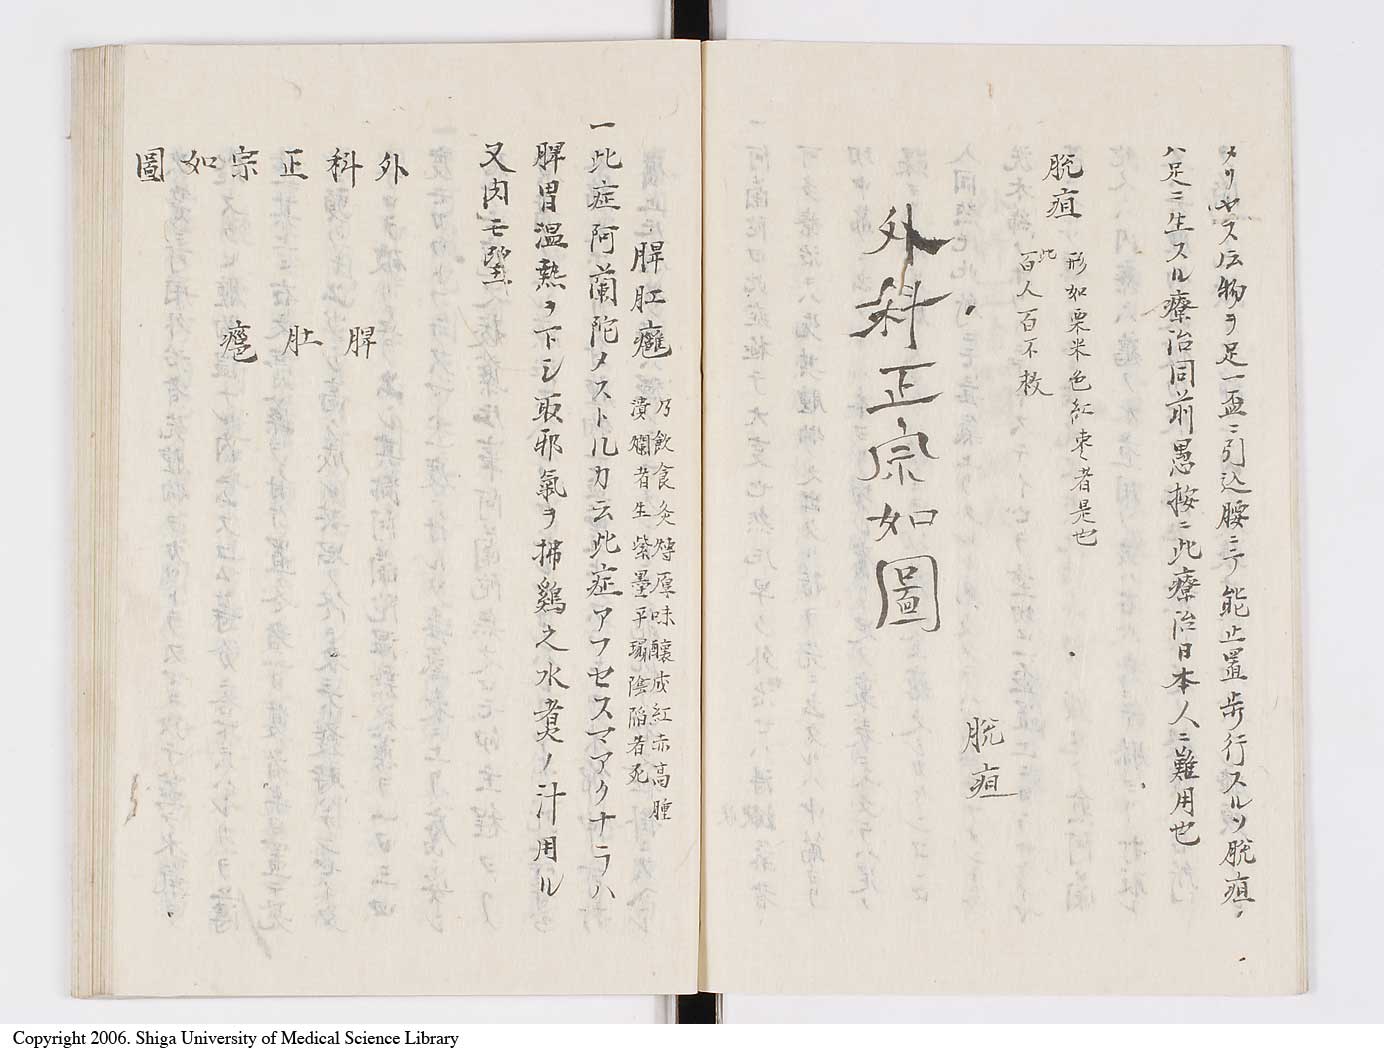 メリヤス伝物ヲ足一盃ニ引込腰ニテ能止置歩行スルソ脱疽
ハ足ニ生スル療治同前愚按ニ此療治日本人ニ難用也
脱疽
形如栗米色紅棗者是也
此百人百不救
脱疽
外科正宗如圖
脾肛癰
乃飲食炙煿厚味釀成紅赤高腫
潰爛者生紫黒平塌陰陷者死
一此症阿蘭陀メストルカ云此症アフセスマアクナラハ
脾胃温熱ヲ下シ取邪氣ヲ拂鷄之水煮ノ汁用ル
又肉モ
外科正宗如圖
脾肚癰
Copyright 2006. Shiga University of Medical Science Library